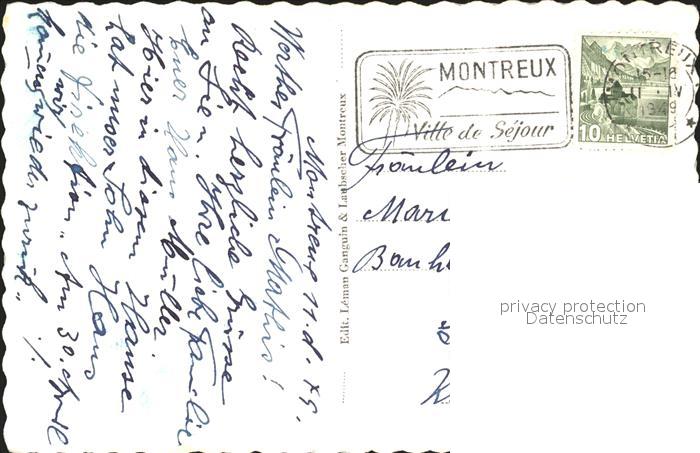 Montreux 11.4.49.
Werthes Fräulein Mathis!
Recht herzliche Grüsse
an Sie u. Ihre liebe Familie
Hans Müller.
Hier in diesem Hause
hat unser Sohn Hans
die Direktion. Am 30. April
wieder zurück.
Edit. Léman Ganguin & Laubscher Montreux
MONTREUX
Ville de Séjour
MONTREUX
15-18
11 IV
1949
10 HELVETIA
Fräulein
Mari
Banh
privacy protection
Datenschutz